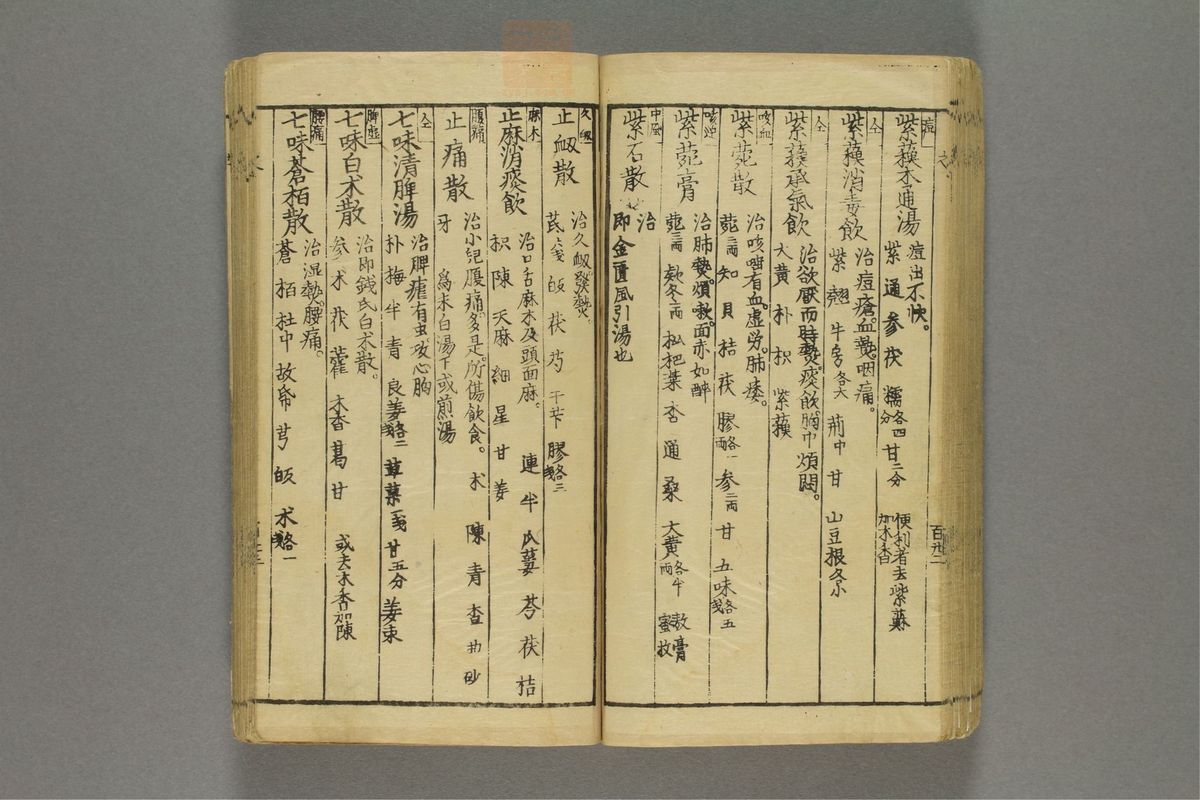 痘
紫蘓木通湯
痘出不快。
紫 通 参 茯 糯各四分 甘二分 便利者去紫蘇加木香
仝
紫蘓消毒飲
治痘瘡。血熱。咽痛。
紫 翹 牛旁各大 荊中 甘 山豆根各小
仝
紫蘓承氣飲
治欲厥而時熱。痰飲。胸巾煩悶。
大黄 朴 枳 紫蘓
咳血
紫菀散
治咳嗽有血。虚労。肺痿。
菀二両 知 貝 桔 茯 膠各一両 参二両 甘 五味各五戔
咳逆
紫菀膏
治肺熱。煩嗽。面赤如醉
菀三両 欵冬二両 枇杷葉 杏 通 桑 大黄各半両 蜜敖膏
中風
紫石散
治
即金匱風引湯也
百卅二
久衂
止衂散
治久衂發熱。
芪戔 皈 茯 芍 干芐 膠各三戔
麻木
止麻消痰飲
治口舌麻木及頭面麻。 連 半 瓜蔞 芩 茯 桔
枳 陳 天麻 細 星 甘 姜
腹痛
止痛散
治小兒腹痛。多是。所傷飲食。 术 陳 青 査 曲 砂
牙 為末白湯下或煎湯
仝
七味清脾湯
治脾瘧有虫。攻心胸
朴 梅 半 青 良姜各二戔 草菓一戔 甘五分 姜束
脾虚
七味白术散
治即錢氏白术散。
参 术 茯 藿 木香 葛 甘 或去木香加陳
腰痛
七味蒼栢散
治湿熱。腰痛。
蒼 栢 杜中 故帋 芎 皈 术各一戔